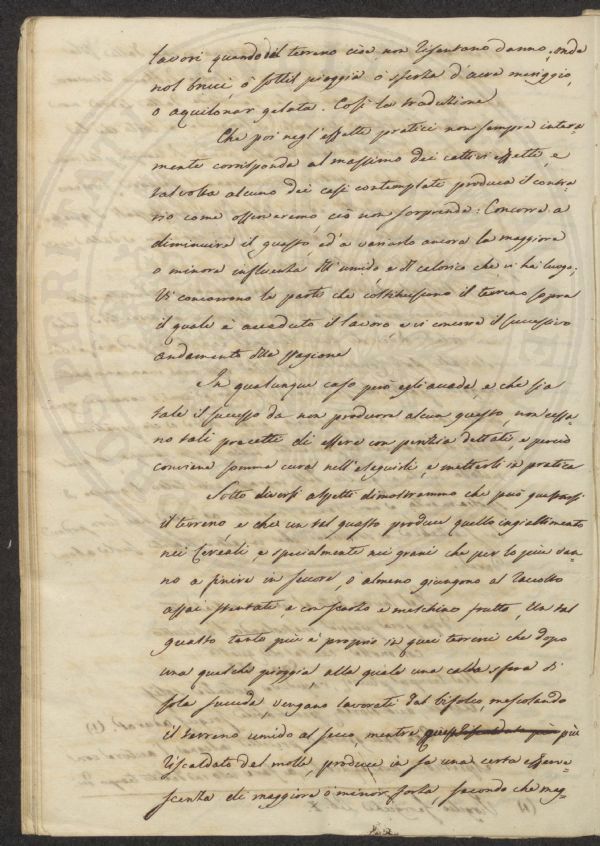 lavori quando il terreno cioè non risentano danno, onde
nol bruci, ó sottil pioggia o sferza d'aura meriggio,
o aquilonar gelata. Così la traduzione
Che poi negl'effetti pratici non sempre intera-
mente corrisponda al massimo dei cattivi effetti, e
talvolta alcuno dei casi contemplati produca il contra-
rio come osserveremo ciò non sorprenda: Concorre a
diminuire il guasto, ed'a variarlo ancora la maggiore
o minore influenza dell'umido, e del calorico che vi ha luogo;
Vi concorrono le parti che costituiscono il terreno sopra
il quale è accaduto il lavoro e vi concorre il successivo
andamento della stagione
In qualunque caso però egli accada, e che sia
tale il successo da non produrre alcun guasto non cessa-
no tali precetti di essere con perizia dettati, e perciò
conviene somma cura nell'eseguirli, e metterli in pratica
Sotto diversi aspetti dimostrammo che può guastarsi
il terreno, e che un tal guasto produce quello ingiallimento
nei Cereali, e specialmente nei grani che per lo più van-
no a finire in seccore, o almeno giungono al raccolto
assai stentati, e con scarso e meschino frutto, Un tal
guasto tanto più è proprio in quei terreni che dopo
una qualche pioggia alla quale una calda sfera di
sole succeda, vengano lavorati dal bifolco, mescolando
il terreno umido al secco, mentre più
riscaldato del molle, produce in se una certa efferve-
scenza di maggiore o minor forza, secondo che mag-